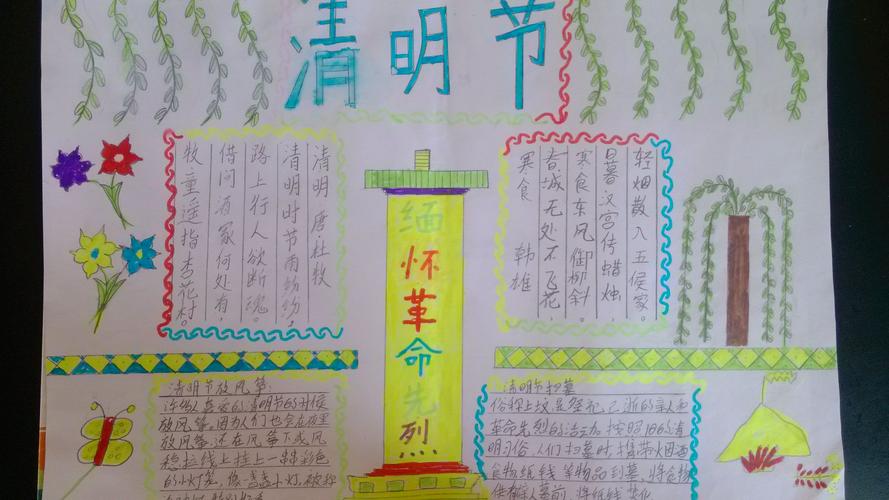 清明节
清明 唐·杜牧
清明时节雨纷纷,
路上行人欲断魂。
借问酒家何处有,
牧童遥指杏花村。
缅怀革命先烈
寒食 韩雄
春城无处不飞花
寒食东风御柳斜.
日暮汉宫传蜡烛,
轻烟散入五侯家.
清明节放风筝:
许多人喜爱的清明节的时候
放风筝,因为人们也会在夜里
放风筝,还在风筝下或风
稳拉线上挂上一串彩色
的小灯笼,像盏盏小灯,被称
清明节扫墓
俗称上坟是祭祀,已逝的亲人和
革命先烈的活动,按照旧的清
明习俗,人们扫墓时,携带酒
食物纸钱等物品到墓,将食物
在墓前,将纸钱焚化